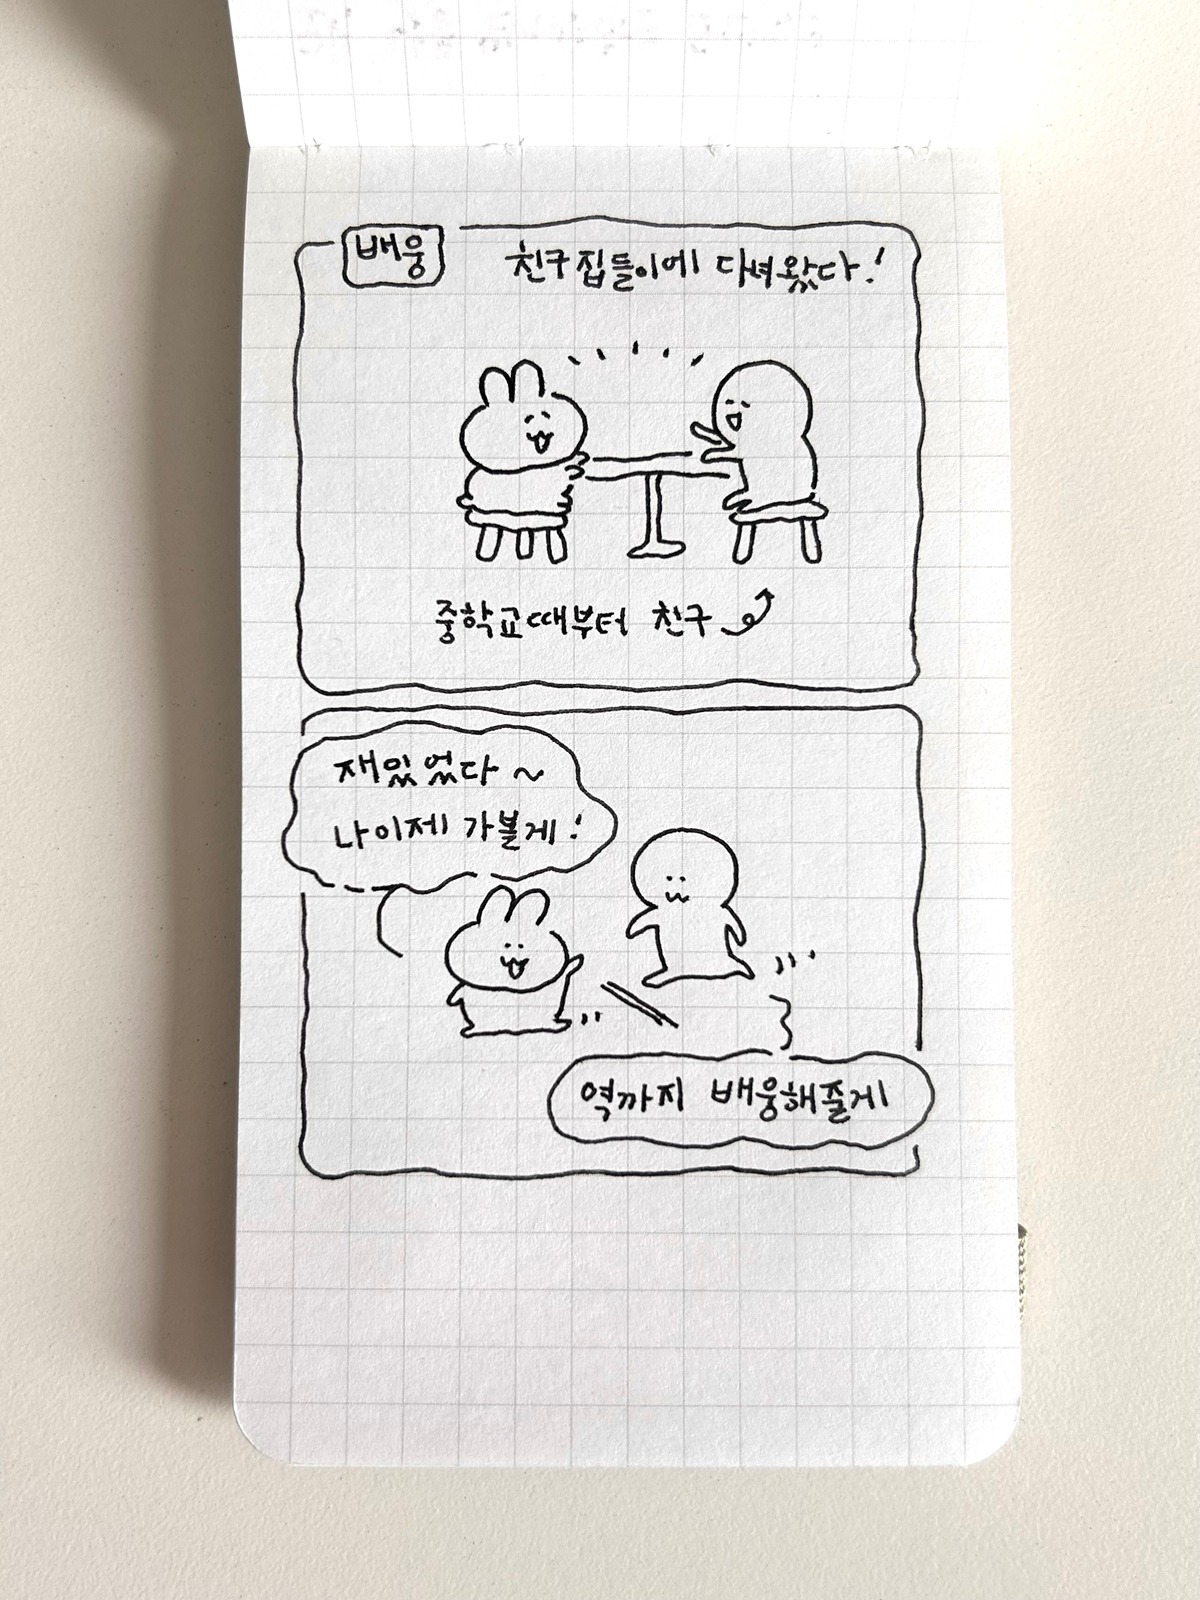 배웅
친구 집들이에 다녀왔다!
중학교때부터 친구
재밌었다~
나 이제 가볼게!
역까지 배웅해줄게